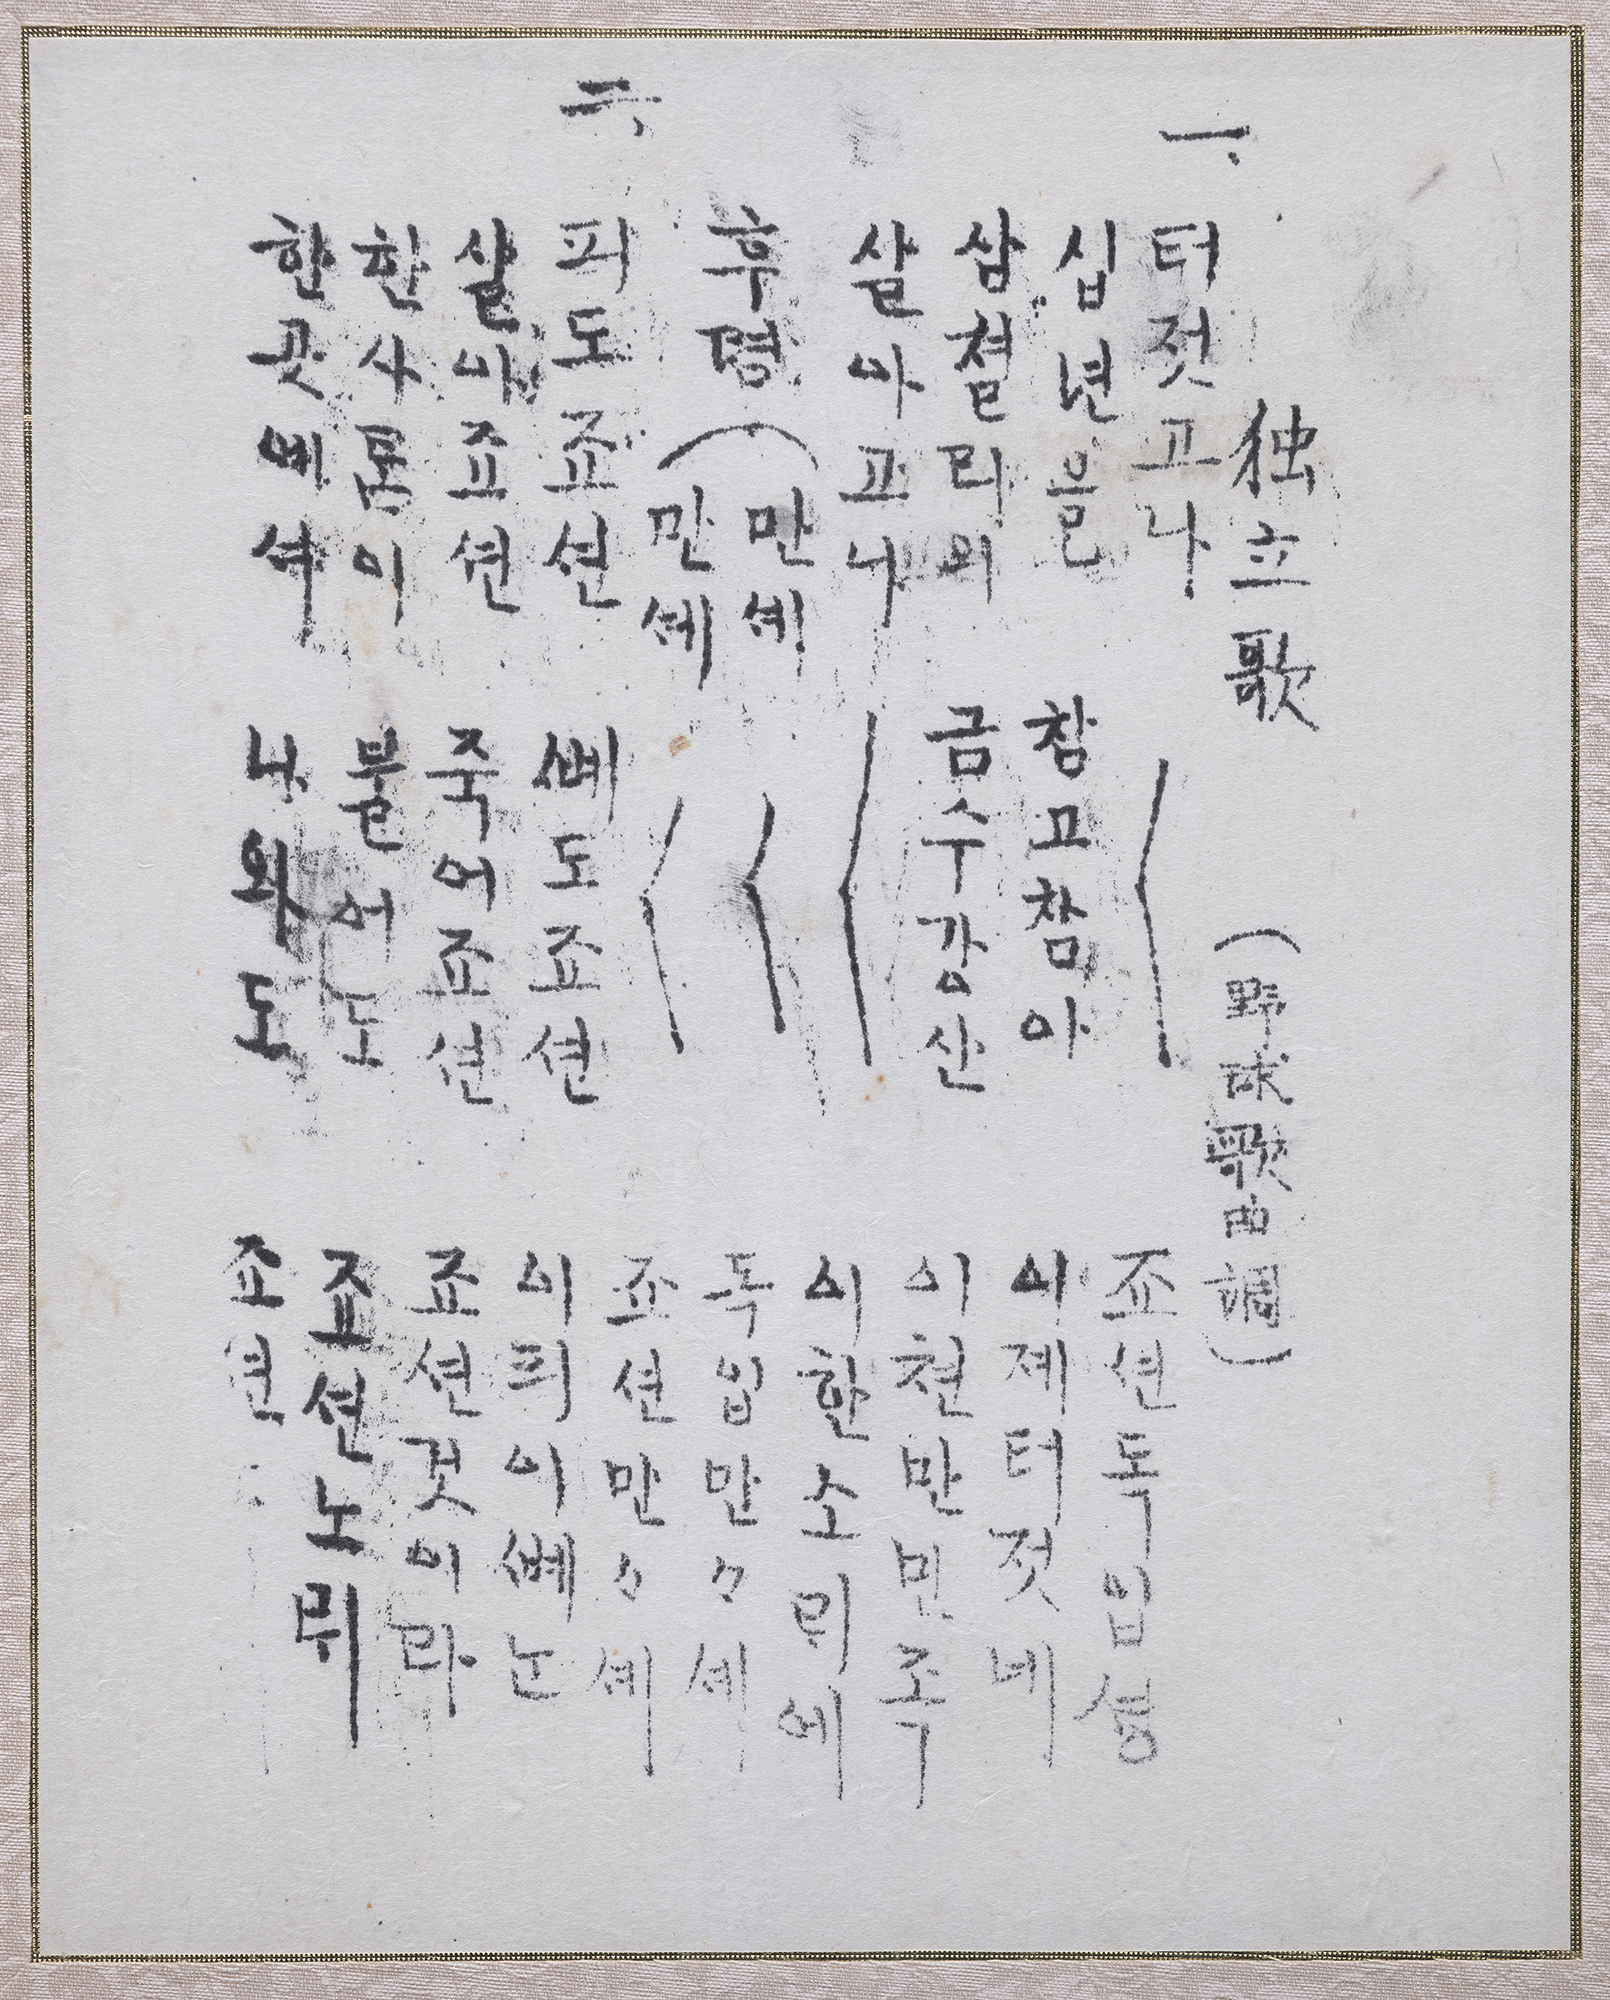 独立歌 (野球歌曲調)
一、
터젓고나 〱 죠션독입셩
십년을 참고참아 이제터젓네
삼쳘리의 금수강산 이쳔만민족
살아고나 〱 이한소릐에
후렴 (만셰 〱 독입만々셰
만셰 〱 죠션만々셰
二、
피도죠션 뼤도죠션 이픠이뼤는
살아죠션 죽어죠션 죠션것이라
한사람이 불어도 죠션노릐
한곳에셔 나와도 죠션